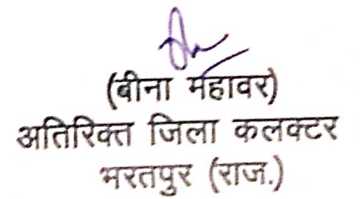 (बीना महावर)
अतिरिक्त जिला कलक्टर
भरतपुर (राज.)